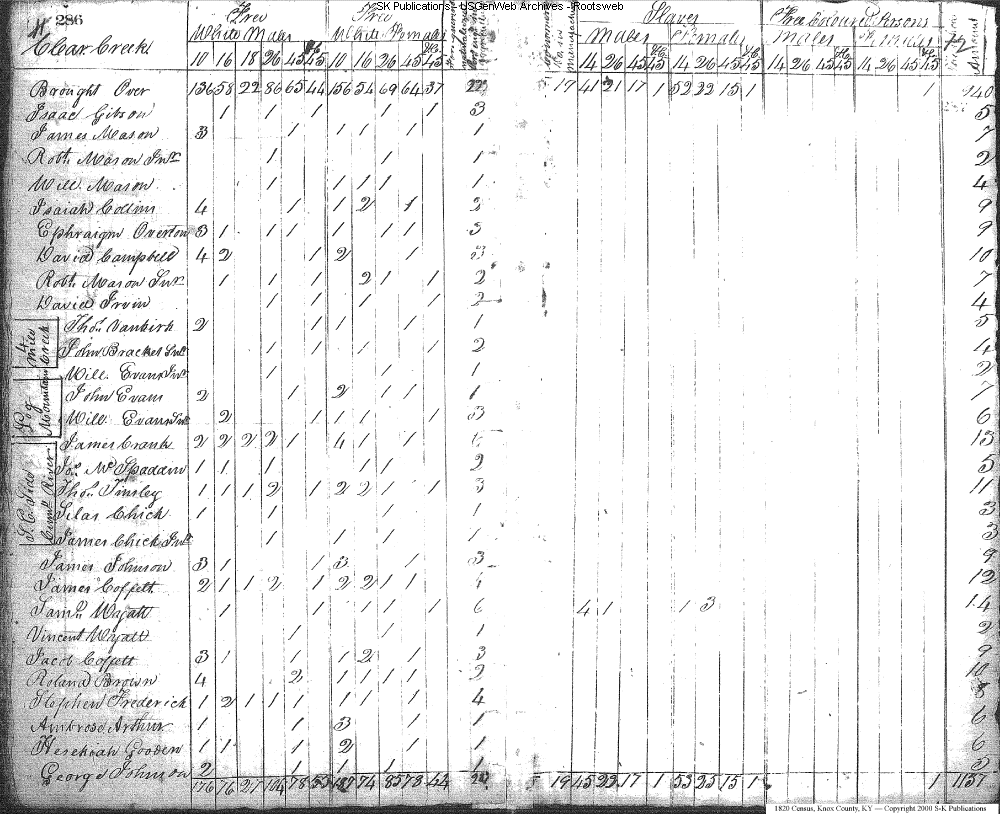 SK Publications - USGenWeb Archives - Rootsweb
286 Free Free Slaves Free Coloured Persons
Clear Creek White Males White Females Males Females Males Females 72
10 16 18 26 45 45 10 16 26 45 45 14 26 45 45 14 26 45 45 14 26 45 45 14 26 45 45
Brought Over 136 58 22 86 65 44 156 54 69 64 37 17 41 21 17 1 52 22 15 1 1 940
Isaac Gibson 1 1 1 1 1 1 3 5
James Mason 3 1 1 1 1 1 7
Robt. Mason Junr 1 1 1 2
Will. Mason 1 1 1 1 1 4
Isaiah Collins 4 1 1 2 1 9
Ephraigm Overton 3 1 1 1 1 1 1 3 9
David Campbell 4 2 1 2 1 3 10
Robt. Mason Snr 1 1 1 2 1 1 2 7
David Irvin 1 1 1 1 2 4
Thos. Vankirk 2 1 1 1 1 5
4 Mile Creek
John Bracket Snr 1 1 1 1 2 4
Will. Evans Jnr 1 1 1 2
John Evans 2 1 2 1 1 1 7
Log Mountain
Will Evans Snr 2 1 1 1 1 3 6
James Crank 2 2 2 2 1 4 1 1 13
Jos. McSpadden 1 1 1 1 1 2 5
Thos. Tinsley 1 1 1 2 1 2 2 1 1 3 11
S. C. Side Cumb. River
Silas Chick 1 1 1 1 3
James Chick Junr 1 1 1 1 3
James Johnson 3 1 1 3 1 3 9
James Coffett 2 1 1 2 1 2 2 1 1 4 12
Saml. Wyatt 1 1 1 1 1 6 4 1 1 3 14
Vincent Wyatt 1 1 1 2
Jacob Coffett 3 1 1 1 2 1 3 9
Roland Brown 4 2 1 1 1 1 2 10
Stephen Frederick 1 2 1 1 1 1 1 4 8
Ambrose Arthur 1 1 3 1 1 6
Hesekiah Gooden 1 1 1 2 1 1 6
George Johnson 2 1 1 1 1 5
176 76 27 104 78 53 187 74 85 78 44 19 45 22 17 1 53 25 15 1 1 1157
1820 Census, Knox County, KY — Copyright 2000 S-K Publications